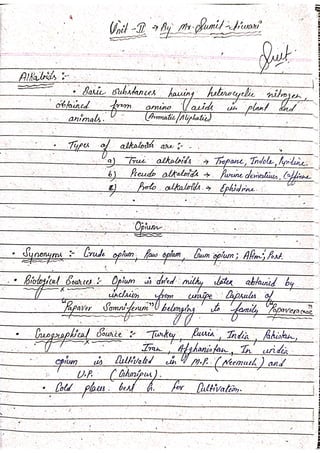 Unit - II → By Mr. Sumit Tiwari
Alkaloids :-
• Basic substances having heterocyclic nitrogen,
obtained from amino acids in plant and
animals. (Aromatic/Aliphatic)
• Types of alkaloids are :-
a) True alkaloids → Tropane, Indole,
b) Pseudo alkaloids → Purine derivatives, Caffeine
c) Proto alkaloids → Ephidrine
Opium
• Synonyms :- Crude opium, Raw opium, Gum opium;
• Biological Sources :- Opium is dried milky latex obtained by
incision from unripe Capsules of
"Papaver Somniferum" belonging to family "Papaveraceae"
• Geographical Source :- Turkey, Russia, India, Pakistan,
Iran, Afghanistan, In india
opium is Cultivated in M.P. (Neemuch) and
U.P.
• Cold places best for Cultivation.